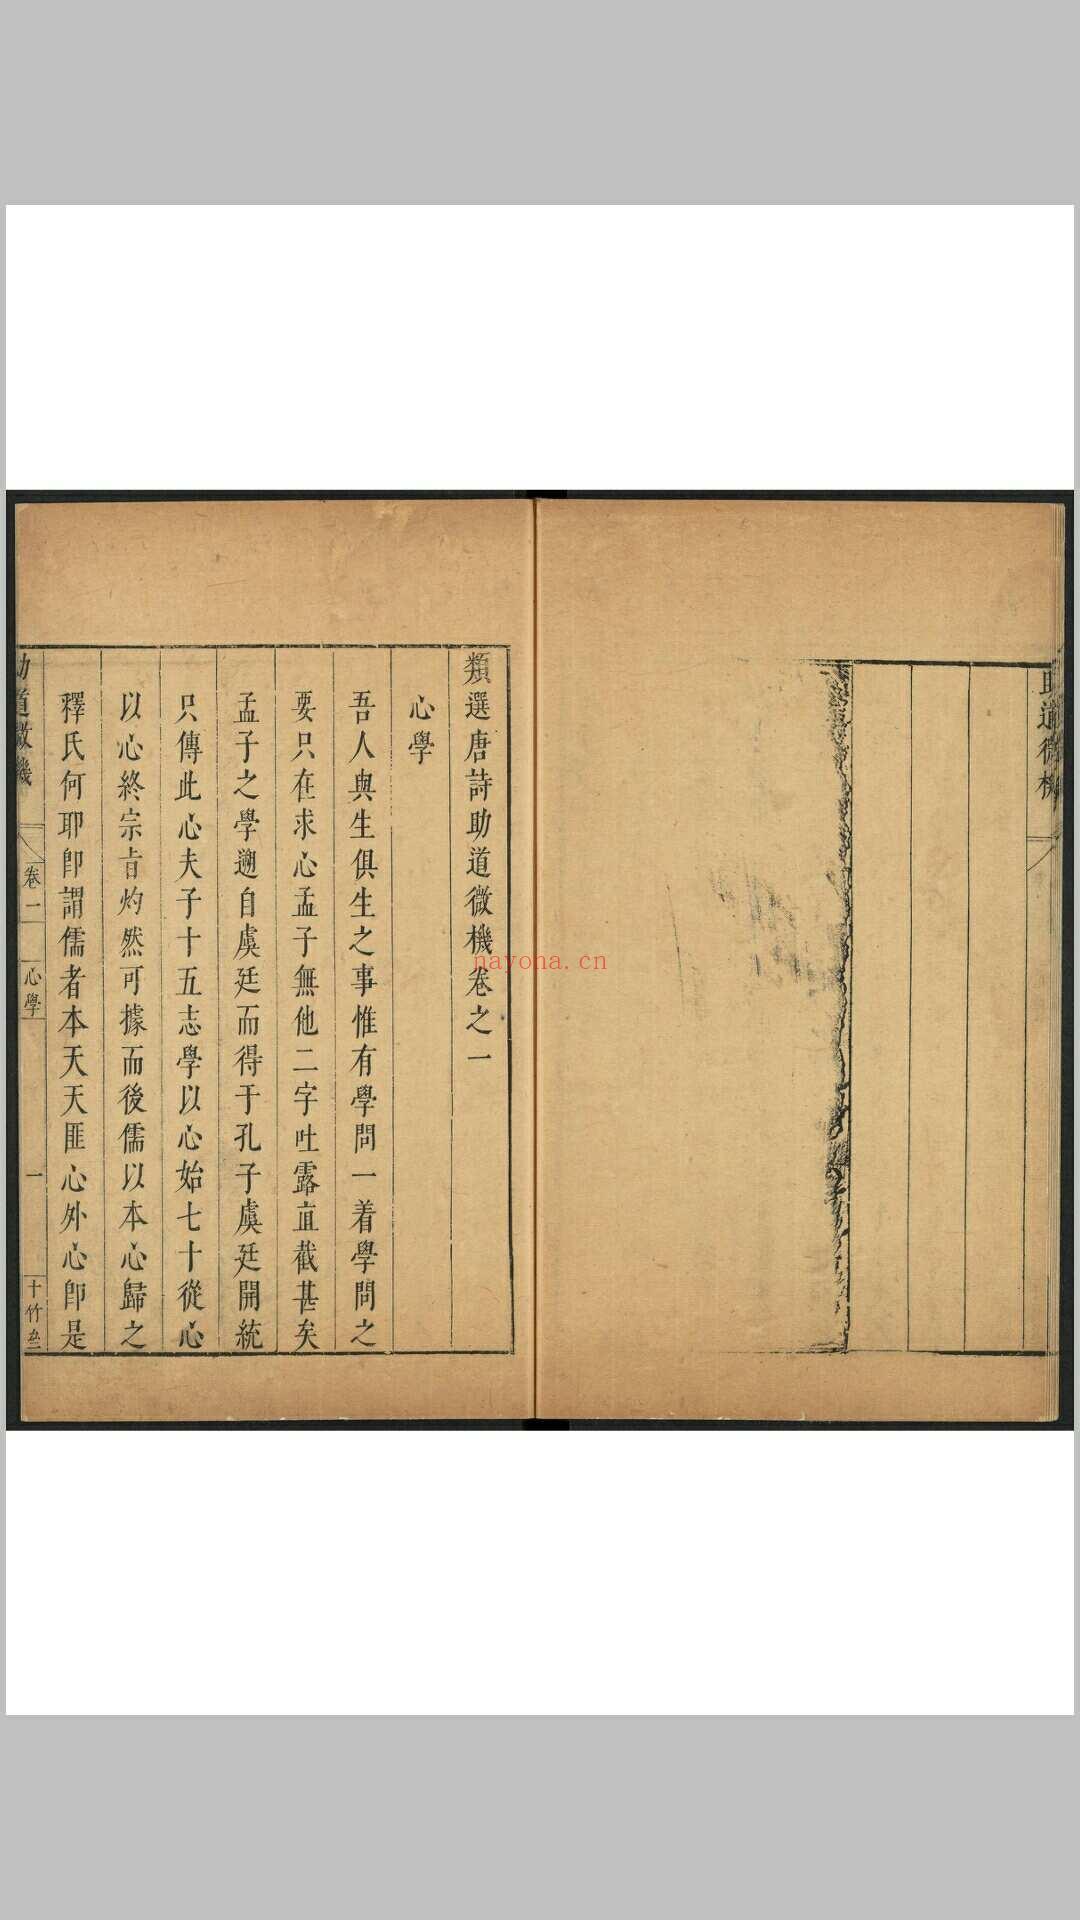 助道微機
類選唐詩助道微機卷之一
心學
吾人與生俱生之事惟有學問一着學問之
要只在求心孟子無他二字吐露直截甚矣
孟子之學遡自虞廷而得于孔子虞廷開統
只傳此心夫子十五志學以心始七十從心
以心終宗旨灼然可據而後儒以本心歸之
釋氏何耶卽謂儒者本天天匪心外心卽是
助道微機
卷一
心學
一
十竹
nayona.cn